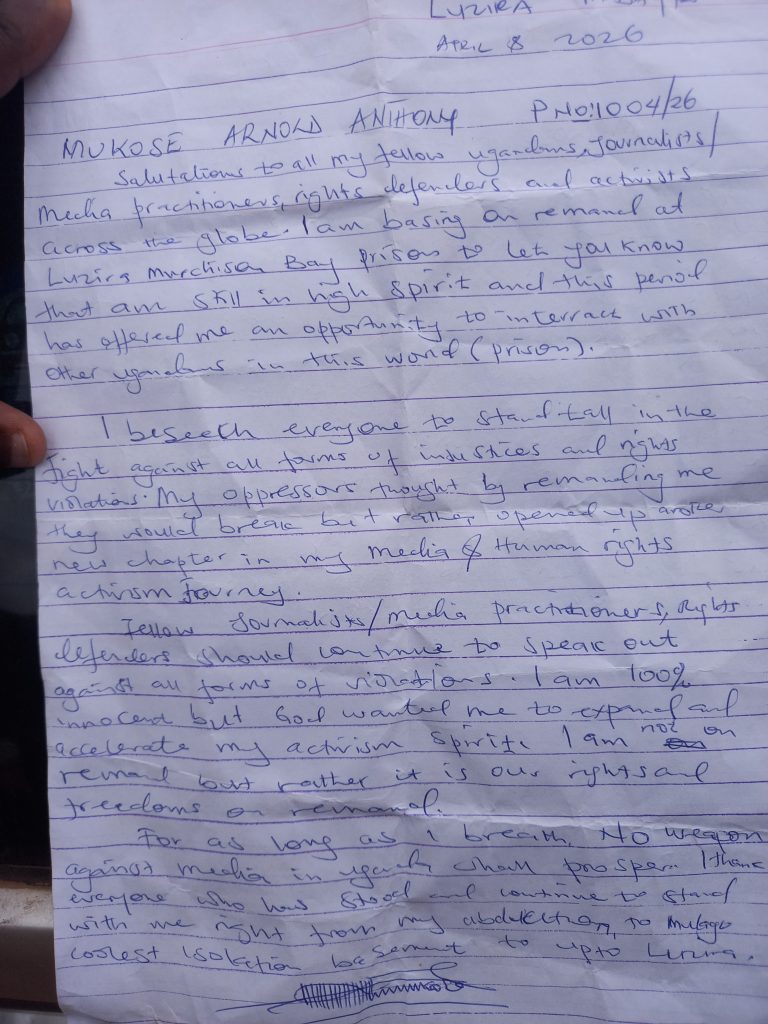 LUZIRA
APRIL 8 2026
MUKOSE ARNOLD ANTHONY PNO:1004/26
Salutations to all my fellow ugandans, Journalists/
Media practitioners, rights defenders and activists
across the globe. I am basing on remand at
Luzira Murchison Bay prison to let you know
that am still in high spirit and this period
has offered me an opportunity to interract with
other ugandans in this world (prison).
I beseech everyone to stand tall in the
fight against all forms of injustices and rights
violations. My oppressors thought by remanding me
they would break but rather opened up
new chapter in my media & Human rights
activism Journey.
Fellow Journalists/media practitioners, rights
defenders should continue to speak out
against all forms of violations. I am 100%
innocent but God wanted me to expand and
accelerate my activism spirit. I am not on
remand but rather it is our rights and
freedoms on remand.
For as long as I breath, No weapon
against media in uganda shall prosper. I thank
everyone who has stood and continue to stand
with me right from my abduction, to
coolest isolation basement to upto Luzira.